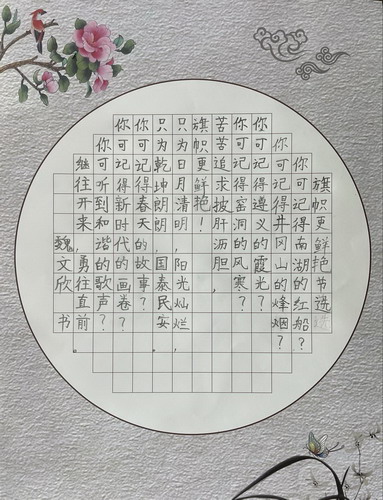 旗帜更鲜艳节选
你可记得南湖的红船？
你可记得井冈山的烽烟？
你可记得遵义的霞光？
你可记得窑洞的风寒？
苦苦追求披肝沥胆
旗帜更鲜艳！
只为日月清明，阳光灿烂，
只为乾坤朗朗，国泰民安。
你可记得春天的故事？
你可记得新时代的画卷？
你可听到和谐的歌声？
继往开来，勇往直前。
魏文欣书